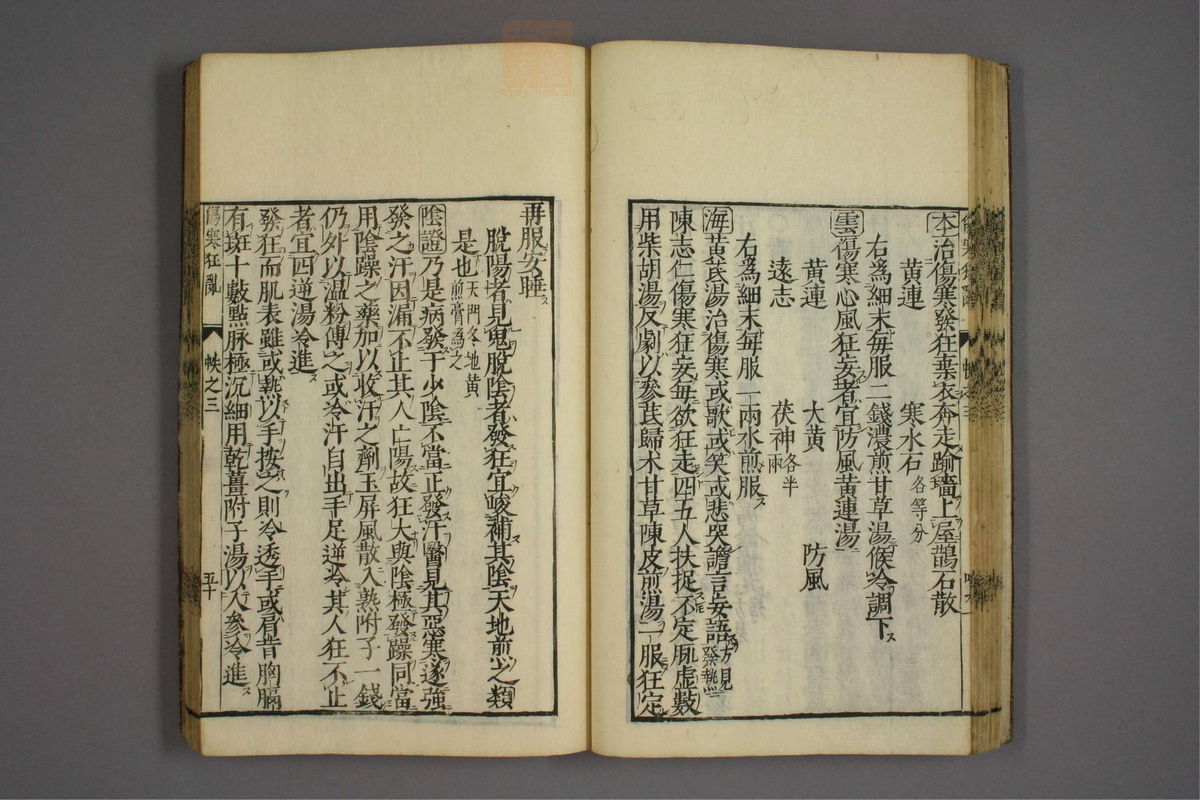 本治傷寒發狂棄衣奔走踰墻上屋鵲石散
黄連　寒水石各等分
右爲細末毎服二錢濃煎甘草湯候冷調下ス
雲傷寒心風狂妄者宜防風黄連湯
黄連　大黄　防風
遠志　茯神各半兩
右爲細末毎服一兩水煎服ス
海黄芪湯治傷寒或歌或笑或悲哭譫言妄語方見發熱
陳志仁傷寒狂妄毎欲狂走四五人扶捉不定脉虚數
用柴胡湯反劇以參芪歸朮甘草陳皮煎湯一服狂定
再服安睡ス
脫陽者見鬼脫陰者發狂宜峻補其陰天地煎之類
是也天門冬地黄煎膏爲之
陰證乃是病發于少陰不當正發汗醫見其惡寒遂強
發之汗因漏不止其人亡陽故狂大典陰極發躁同當
用陰躁之藥加以收汗之劑玉屏風散入熟附子一錢
仍外以溫粉傅之或冷汗自出手足逆冷其人狂不止
者宜四逆湯冷進ス
發狂而肌表雖或熱以手按之則冷透手或肩背胸膈
有斑十數點脉極沉細用乾薑附子湯以人參冷進ス
傷寒狂亂　帙之三　五十